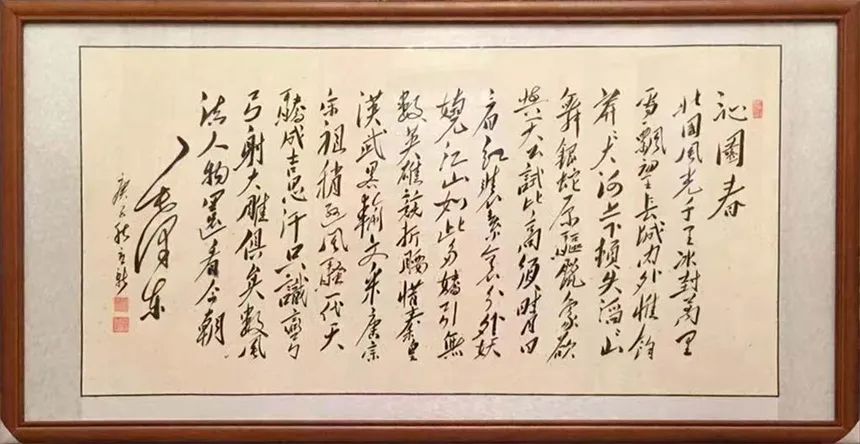 沁園春
北国風光千里冰封萬里
雪飄望長城内外惟餘
莽〻大河上下頓失滔〻山
舞銀蛇原驅蠟象欲
與天公試比高須晴日
看红装素裹分外妖
嬈江山如此多嬌引無
數英雄競折腰惜秦皇
漢武畧輸文采唐宗
宋祖稍遜風騷一代天
驕成吉思汗只識彎
弓射大雕俱矣數風
流人物還看今朝
毛澤东